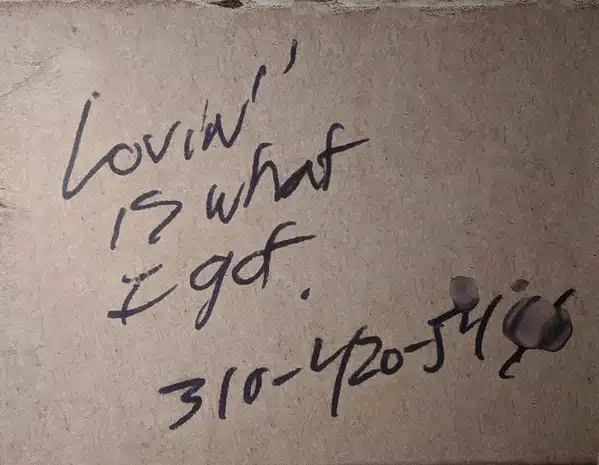 Lovin"
is what
I got.
310-420-54